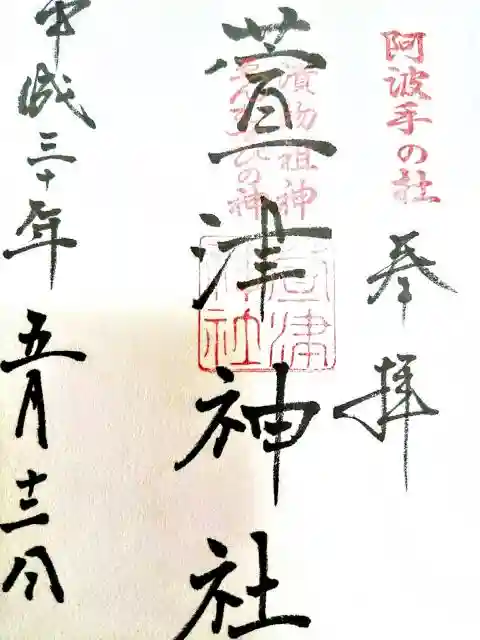 阿波手の社
奉拝
漬物祖神
縁むすびの神
萱津神社
萱津神社
平成三十年五月十三日